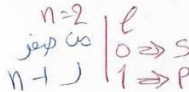 n=2
من صفر
n-1 ل
l
0 ⇒ S
1 ⇒ P